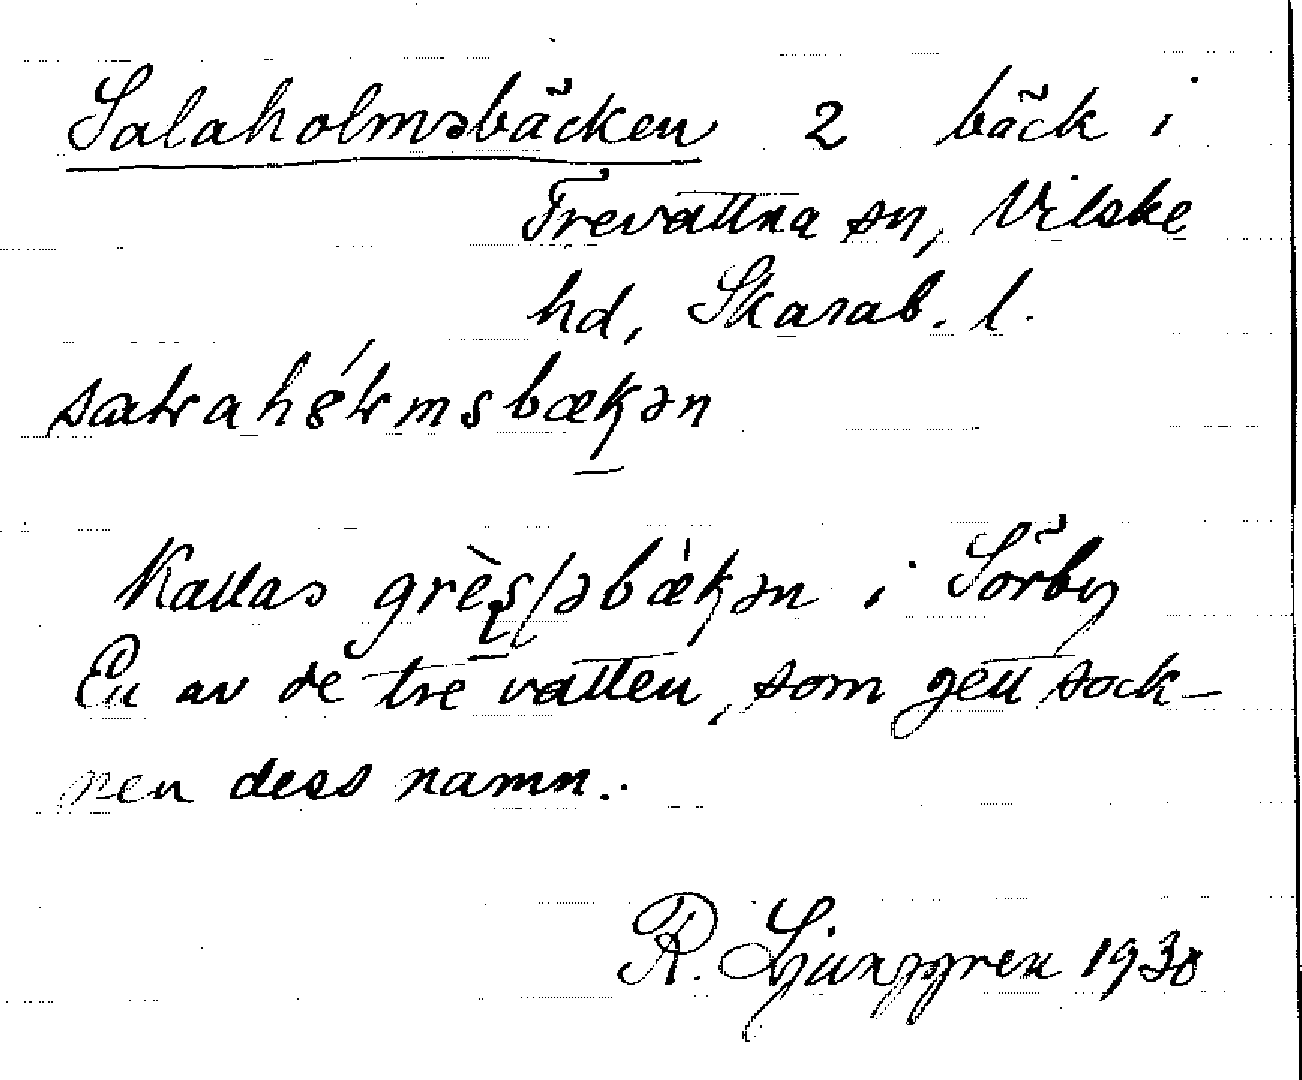 Salaholmsbäcken 2 bäck i
Trevattna sn, Vilske
hd, Skarab. l.
Kallas i Sörby
En av de tre vatten, som gett sock-
nen dess namn.
R. Ljunggren 1930